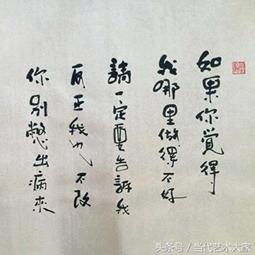 如果你覺得
我哪里做得不好
請一定要告訴我
反正我也不改
你别憋出病來
头条号/当代艺术大家